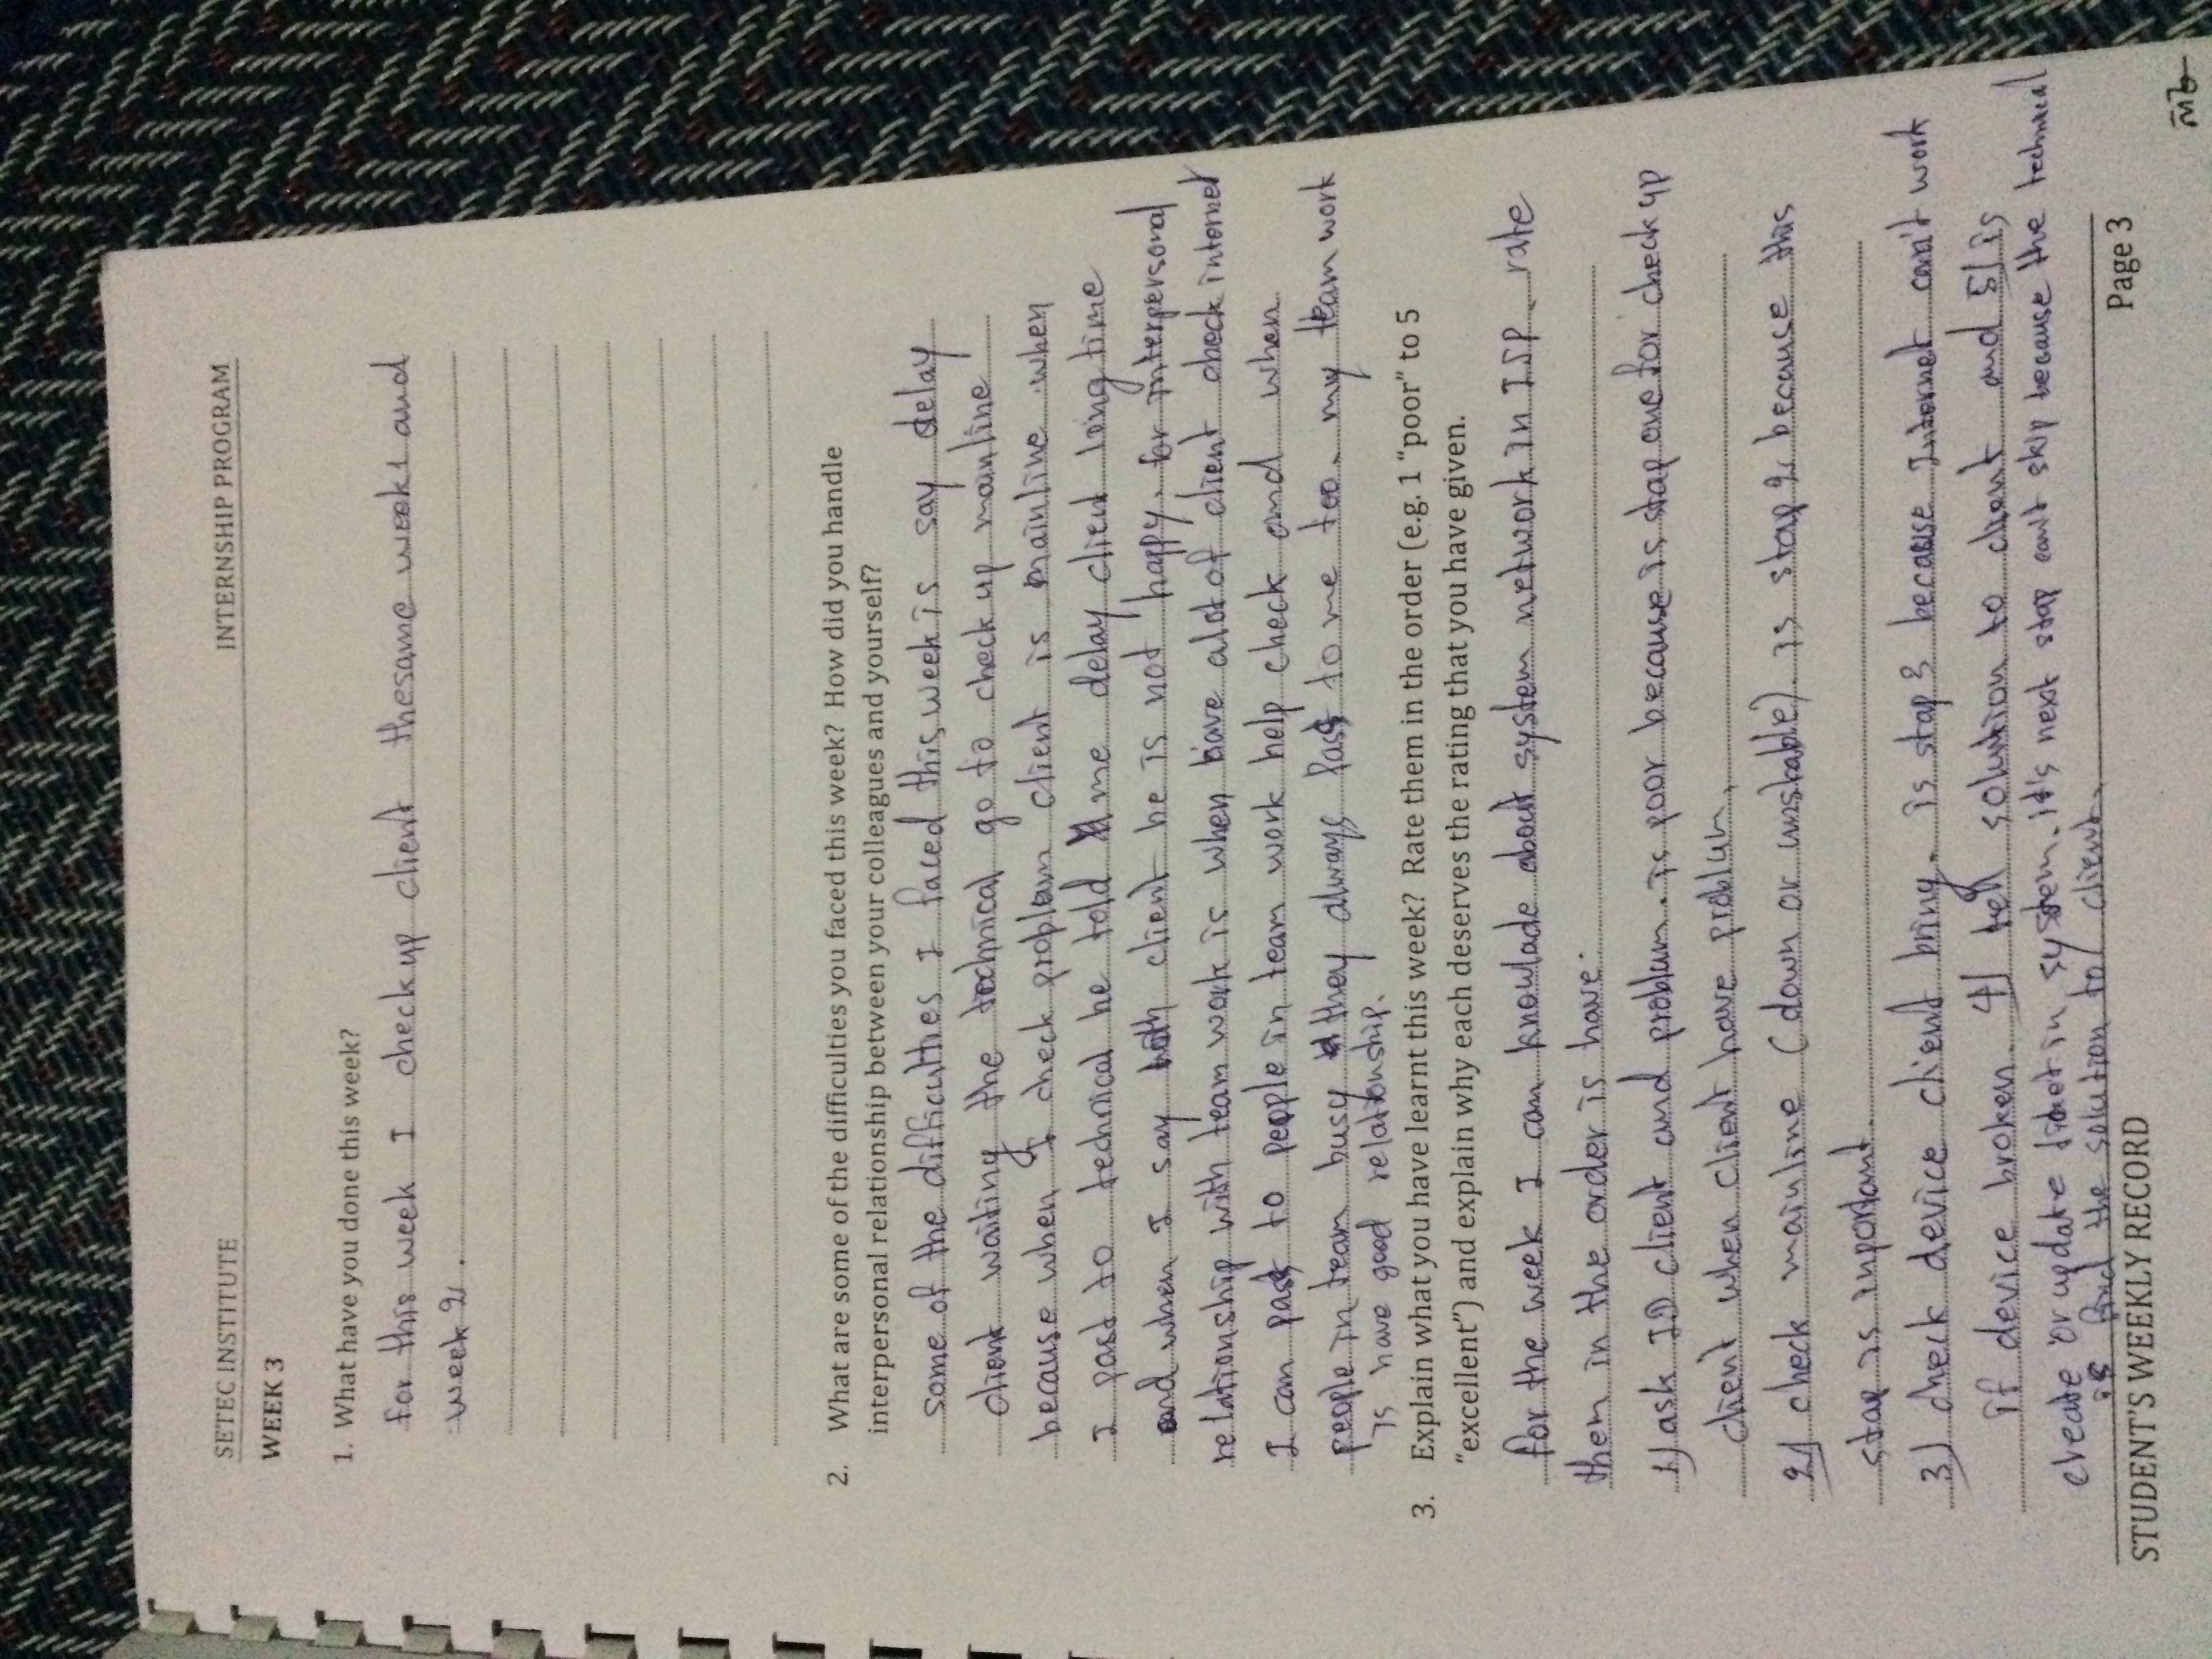 SETEC INSTITUTE INTERNSHIP PROGRAM
WEEK 3
1. What have you done this week?
for this week I check up client thesame week1 and
week 2.
2. What are some of the difficulties you faced this week? How did you handle
interpersonal relationship between your colleagues and yourself?
some of the difficulties I faced this week is say delay
client waiting the technical go to check up mainline
because when I check problem client is mainline when
I past to technical he told me delay client long time
and when I say with client he is not happy. for interpersonal
relationship with team work is when have alot of client check internet
I can past to people in team work help check and when
people in team busy they always past to me too. my team work
is have good relationship.
3. Explain what you have learnt this week? Rate them in the order (e.g. 1 “poor” to 5
“excellent”) and explain why each deserves the rating that you have given.
for the week I can knowlade about system network in ISP. rate
them in the order is have:
1) ask ID client and problam. is poor because is stap one for check up
client when client have problam,
2) check mainline (down or unstable). is stap 2 because this
stap is inportant.
3) check device client bring. is stap 3 because Internet can't work
if device broken. 4) tell solution to client and 5) is
create or update ticket in system. it's next stap can't skip because the technical
is find the solution to client.
STUDENT'S WEEKLY RECORD Page 3